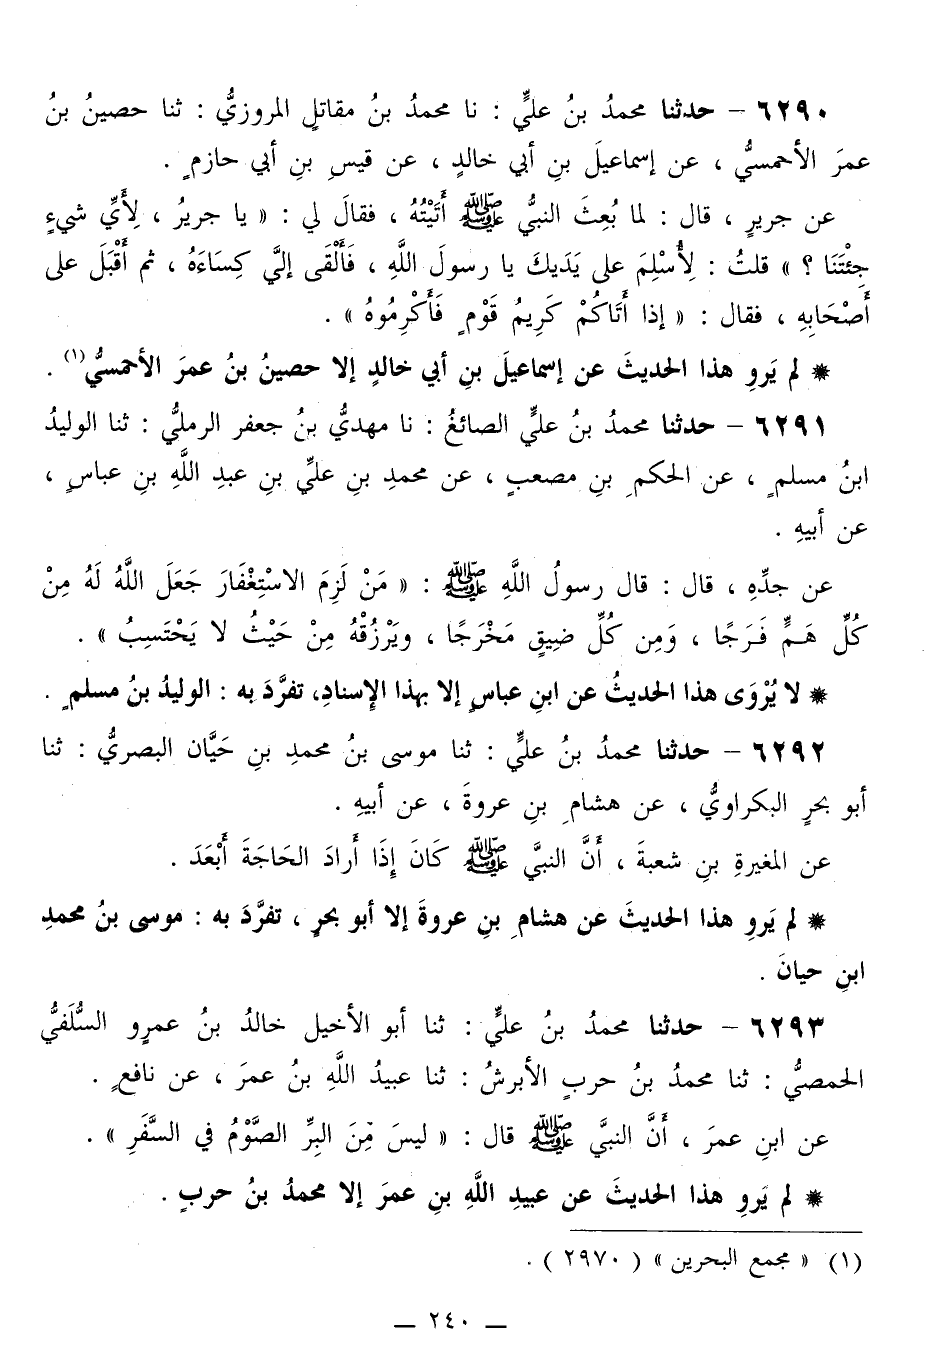 ٦٢٩٠ - حدثنا محمدُ بنُ عليٍّ : نا محمدُ بنُ مقاتلٍ المروزيُّ : ثنا حصينُ بنُ
عمرَ الأحمسيُّ ، عن إسماعيلَ بنِ أبي خالدٍ ، عن قيسِ بنِ أبي حازمٍ .
عن جريرٍ ، قال : لما بُعِثَ النبيُّ ﷺ أَتَيْتُهُ ، فقالَ لي : « يا جريرُ ، لِأَيِّ شيءٍ
جِئْتَنَا ؟ » قلتُ : لِأُسْلِمَ على يَدَيكَ يا رسولَ اللَّهِ ، فَأَلْقَى إليَّ كِسَاءَهُ ، ثم أَقْبَلَ على
أَصْحَابِهِ ، فقال : « إذا أَتَاكُمْ كَرِيمُ قَوْمٍ فَأَكْرِمُوهُ » .
* لم يَروِ هذا الحديثَ عن إسماعيلَ بنِ أبي خالدٍ إلا حصينُ بنُ عمرَ الأحمسيُّ (١) .
٦٢٩١ - حدثنا محمدُ بنُ عليٍّ الصائغُ : نا مهديُّ بنُ جعفر الرمليُّ : ثنا الوليدُ
ابنُ مسلمٍ ، عن الحكمِ بنِ مصعبٍ ، عن محمدِ بنِ عليِّ بنِ عبدِ اللَّهِ بنِ عباسٍ ،
عن أبيهِ .
عن جدِّهِ ، قال : قال رسولُ اللَّهِ ﷺ : « مَنْ لَزِمَ الاسْتِغْفَارَ جَعَلَ اللَّهُ لَهُ مِنْ
كُلِّ هَمٍّ فَرَجًا ، وَمِن كُلِّ ضيقٍ مَخْرَجًا ، ويَرْزُقْهُ مِنْ حَيْثُ لا يَحْتَسِبُ » .
* لا يُرْوَى هذا الحديثُ عن ابنِ عباسٍ إلا بهذا الإسنادِ، تفرَّدَ به : الوليدُ بنُ مسلمٍ .
٦٢٩٢ - حدثنا محمدُ بنُ عليٍّ : ثنا موسى بنُ محمدِ بنِ حَيَّان البصريُّ : ثنا
أبو بحرٍ البكراويُّ ، عن هشامِ بنِ عروةَ ، عن أبيهِ .
عن المغيرةِ بنِ شعبةَ ، أَنَّ النبيَّ ﷺ كَانَ إِذَا أَرادَ الحَاجَةَ أَبْعَدَ .
* لم يَروِ هذا الحديثَ عن هشامِ بنِ عروةَ إلا أبو بحرٍ ، تفرَّدَ به : موسى بنُ محمدِ
ابنِ حيانَ .
٦٢٩٣ - حدثنا محمدُ بنُ عليٍّ : ثنا أبو الأخيل خالدُ بنُ عمرٍو السُّلَفيُّ
الحمصيُّ : ثنا محمدُ بنُ حربٍ الأبرشُ : ثنا عبيدُ اللَّهِ بنُ عمرَ ، عن نافعٍ .
عن ابنِ عمرَ ، أَنَّ النبيَّ ﷺ قال : « ليسَ مِّنَ البِرِّ الصَّوْمُ في السَّفَرِ » .
* لم يَروِ هذا الحديثَ عن عبيدِ اللَّهِ بنِ عمرَ إلا محمدُ بنُ حربٍ .
(١) « مجمع البحرين » ( ٢٩٧٠ ) .
ــ ٢٤٠ ــ